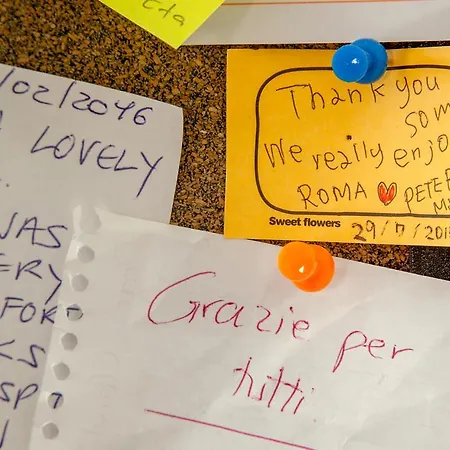 Cta
/02/2046
LOVELY
WAS
ERY
FOR
KS
SP
Thank you
som
We really enjo
ROMA ❤ PETE
Sweet flowers
29/7/201
Grazie per
tutti.